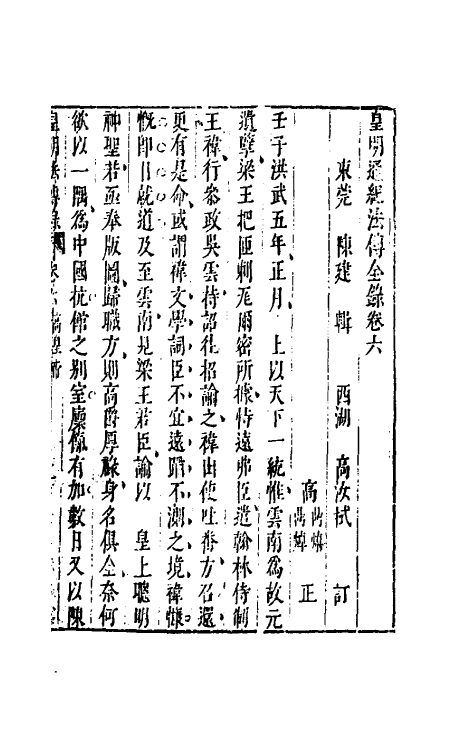 皇明通紀法傳全錄卷六
東莞 陳建 輯 西湖 高汝栻 訂
高 正
壬子洪武五年正月 上以天下一統惟雲南爲故元
遺孽梁王把匝剌瓦爾密所據恃遠弗臣遣翰林侍制
王禕行叅政吳雲持詔往招諭之禕由使吐番方召還
更有是命或謂禕文學詞臣不宜遠蹈不測之境禕慷
慨卽日就道及至雲南見梁王君臣諭以 皇上聰明
神聖若亟奉版圖歸職方則高爵厚祿身名俱全奈何
欲以一隅爲中國抗館之別室廩餼有加數月又以陳